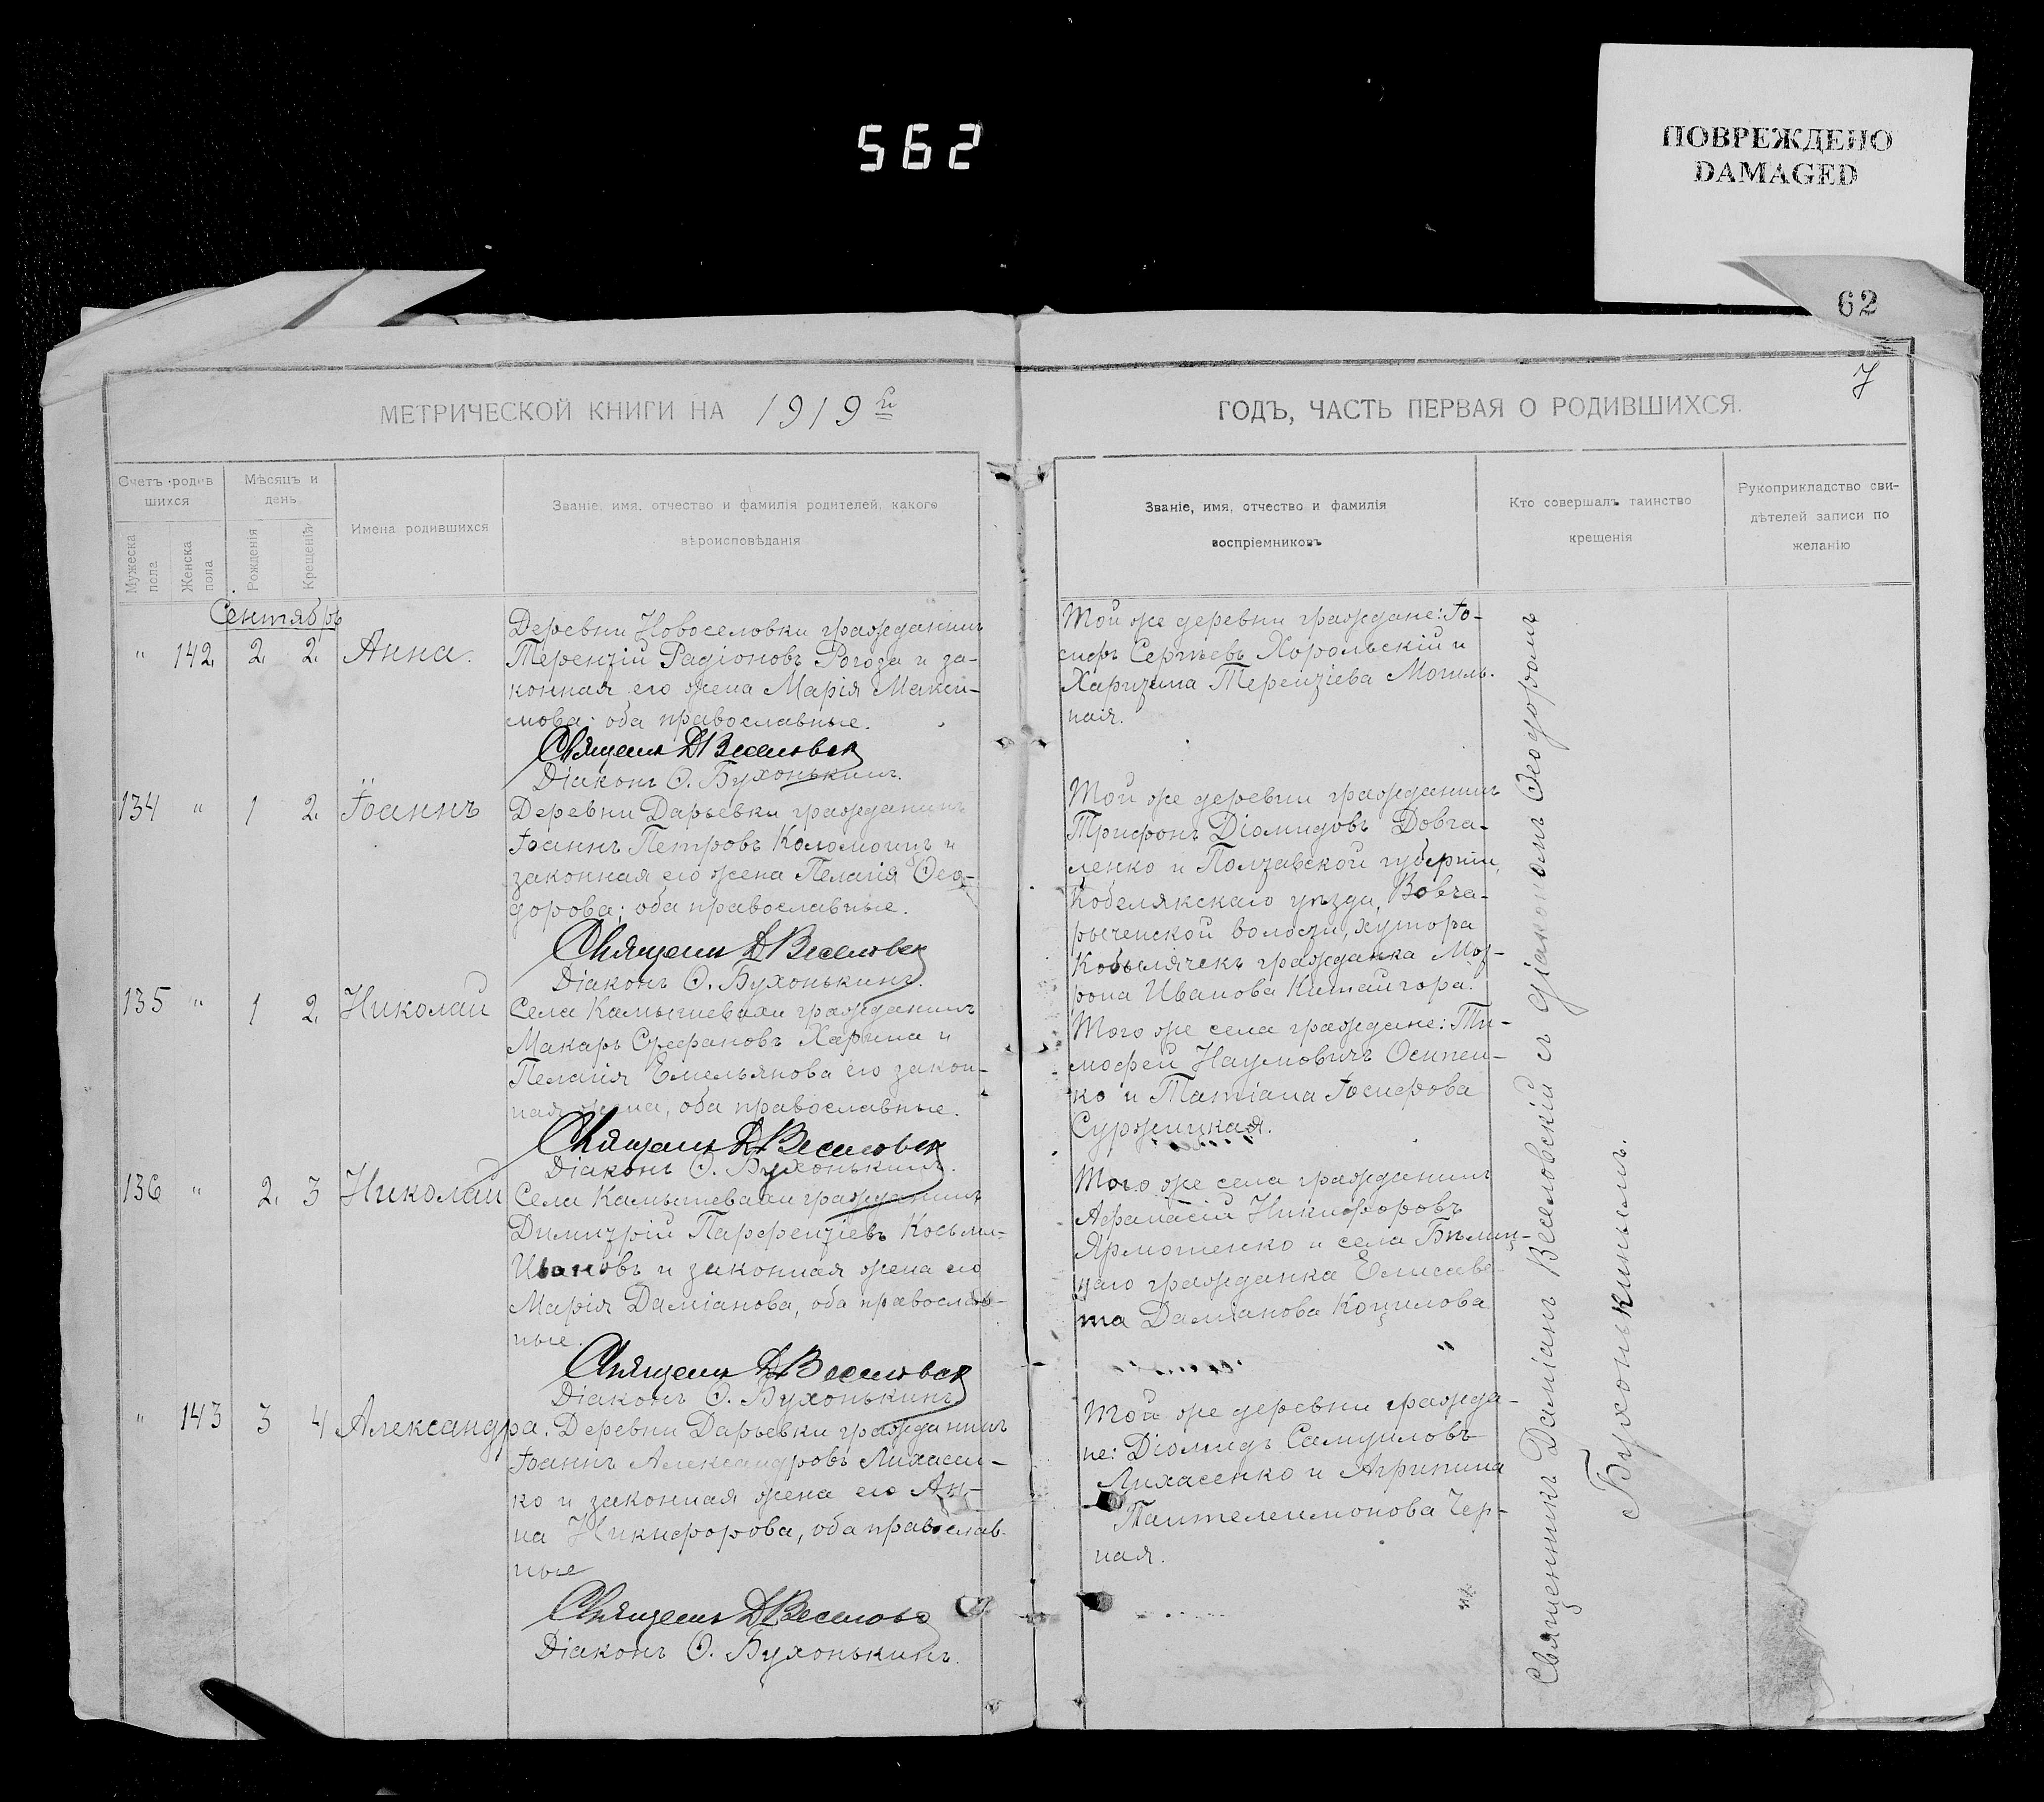 562
ПОВРЕЖДЕНО
DAMAGED
62
7
МЕТРИЧЕСКОЙ КНИГИ НА 1919й
ГОДЪ, ЧАСТЬ ПЕРВАЯ О РОДИВШИХСЯ.
Счетъ родив
шихся
Мужеска
пола
Женска
пола
Мѣсяцъ и
день
Рожденія
Крещенія
Имена родившихся
Званіе, имя, отчество и фамилія родителей, какого
вѣроисповѣданія
Званіе, имя, отчество и фамилія
воспріемниковъ
Кто совершалъ таинство
крещенія
Рукоприкладство сви-
дѣтелей записи по
желанію
Сентябрь
" 142 2. 2. Анна.
Деревни Новоселовки гражданинъ
Терентій Радіоновъ Рогоза и за-
конная его жена Марія Макси-
мова; оба православные.
Священ Д Веселовск
Діаконъ Ѳ. Бухонькинъ.
Той же деревни граждане: Іо-
сифъ Сергѣевъ Хорольскій и
Харитина Терентіева Могиль-
ная.
134 " 1 2. Іоаннъ
Деревни Дарьевки гражданинъ
Іоаннъ Петровъ Коломоицъ и
законная его жена Пелагія Ѳео-
дорова; оба православные.
Священ Д Веселовск
Діаконъ Ѳ. Бухонькинъ.
Той же деревни гражданинъ
Трифонъ Діомидовъ Довга-
ленко и Полтавской губерніи,
Кобелякскаго уѣзда, Вовча-
рыченской волости, хутора
Кобылячекъ гражданка Мот-
рона Иванова Китайгора.
135 " 1 2. Николай
Села Камышевахи гражданинъ
Макаръ Стефановъ Харина и
Пелагія Емельянова его закон-
ная жена, оба православные.
Священ Д Веселовск
Діаконъ Ѳ. Бухонькинъ.
Того же села граждане: Ти-
мофей Наумовичъ Осипен-
ко и Татіана Іосифова
Суржицкая.
136 " 2. 3 Николай
Села Камышевахи гражданинъ
Димитрій Парфентіевъ Косьми-
Ивановъ и законная жена его
Марія Даміанова, оба православ-
ные.
Священ Д Веселовск
Діаконъ Ѳ. Бухонькинъ
Того же села гражданинъ
Афанасій Никифоровъ
Ярмошенко и села Бѣлиц-
каго гражданка Елисаве-
та Даміанова Коцилова
" 143 3 4 Александра.
Деревни Дарьевки гражданинъ
Іоаннъ Александровъ Лихасен-
ко и законная жена его Ан-
на Никифорова, оба православ-
ные
Священ Д Веселовс
Діаконъ Ѳ. Бухонькинъ.
Той же деревни гражда-
не: Діомидъ Самуиловъ
Лихасенко и Агрипина
Пантелеимонова Чер-
ная.
Священникъ Даміанъ Веселовскій съ діакономъ Ѳеодоромъ
Бухонькинымъ.